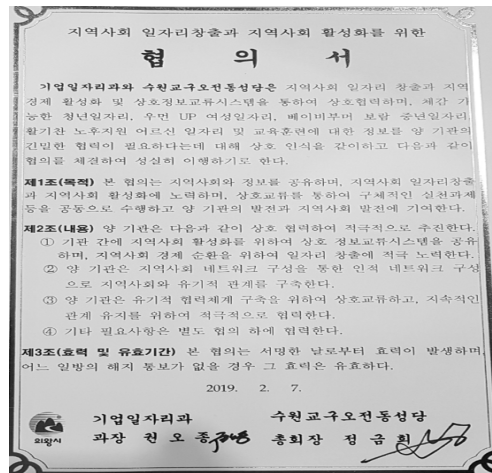 지역사회 일자리창출과 지역사회 활성화를 위한
협 의 서
기업일자리과와 수원교구오전동성당은 지역사회 일자리 창출과 지역
경제 활성화 및 상호정보교류시스템을 통하여 상호협력하며, 체감 가
능한 청년일자리, 우먼 UP 여성일자리, 베이미부머 보람 중년일자리,
활기찬 노후지원 어르신 일자리 및 교육훈련에 대한 정보를 양 기관의
긴밀한 협력이 필요하다는데 대해 상호 인식을 같이하고 다음과 같이
협의를 체결하여 성실히 이행하기로 한다.
제1조(목적) 본 협의는 지역사회와 정보를 공유하며, 지역사회 일자리창출
과 지역사회 활성화에 노력하며, 상호교류를 통하여 구체적인 실천과제
등을 공동으로 수행하고 양 기관의 발전과 지역사회 발전에 기여한다.
제2조(내용) 양 기관은 다음과 같이 상호 협력하여 적극적으로 추진한다.
① 기관 간에 지역사회 활성화를 위하여 상호 정보교류시스템을 공유
하며, 지역사회 경제 순환을 위하여 일자리 창출에 적극 노력한다.
② 양 기관은 지역사회 네트워크 구성을 통한 인적 네트워크 구성
으로 지역사회와 유기적 관계를 구축한다.
③ 양 기관은 유기적 협력체계 구축을 위하여 상호교류하고, 지속적인
관계 유지를 위하여 적극적으로 협력한다.
④ 기타 필요사항은 별도 협의 하에 협력한다.
제3조(효력 및 유효기간) 본 협의는 서명한 날로부터 효력이 발생하며,
어느 일방의 해지 통보가 없을 경우 그 효력은 유효하다.
2019. 2. 7.
의왕시
기업일자리과 수원교구오전동성당
과장 권오종 총회장 정금회